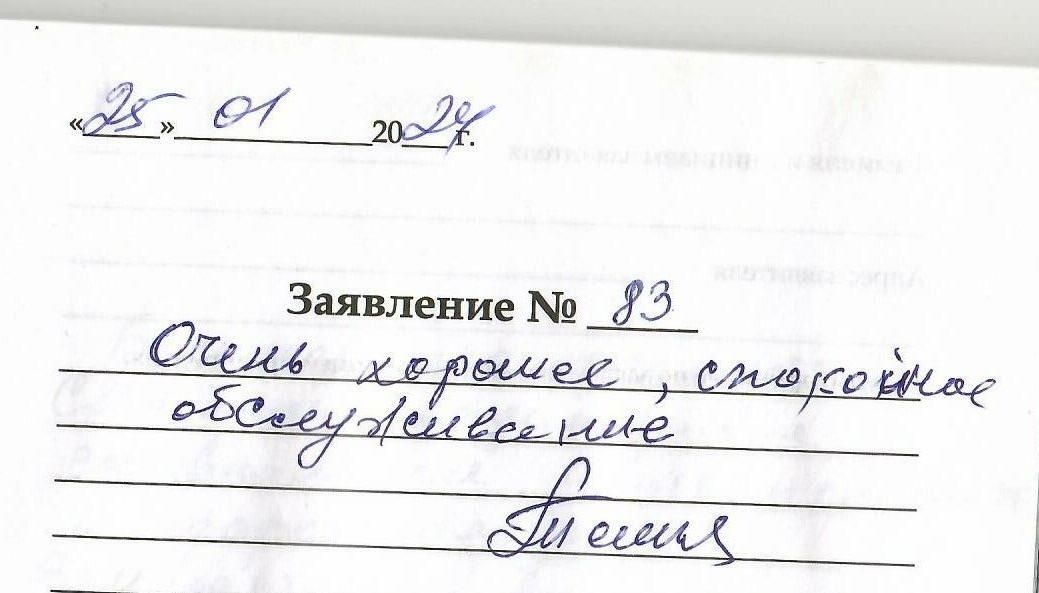 «25» 01 2024 г.
Заявление № 83
Очень хорошее, спокойное
обслуживание